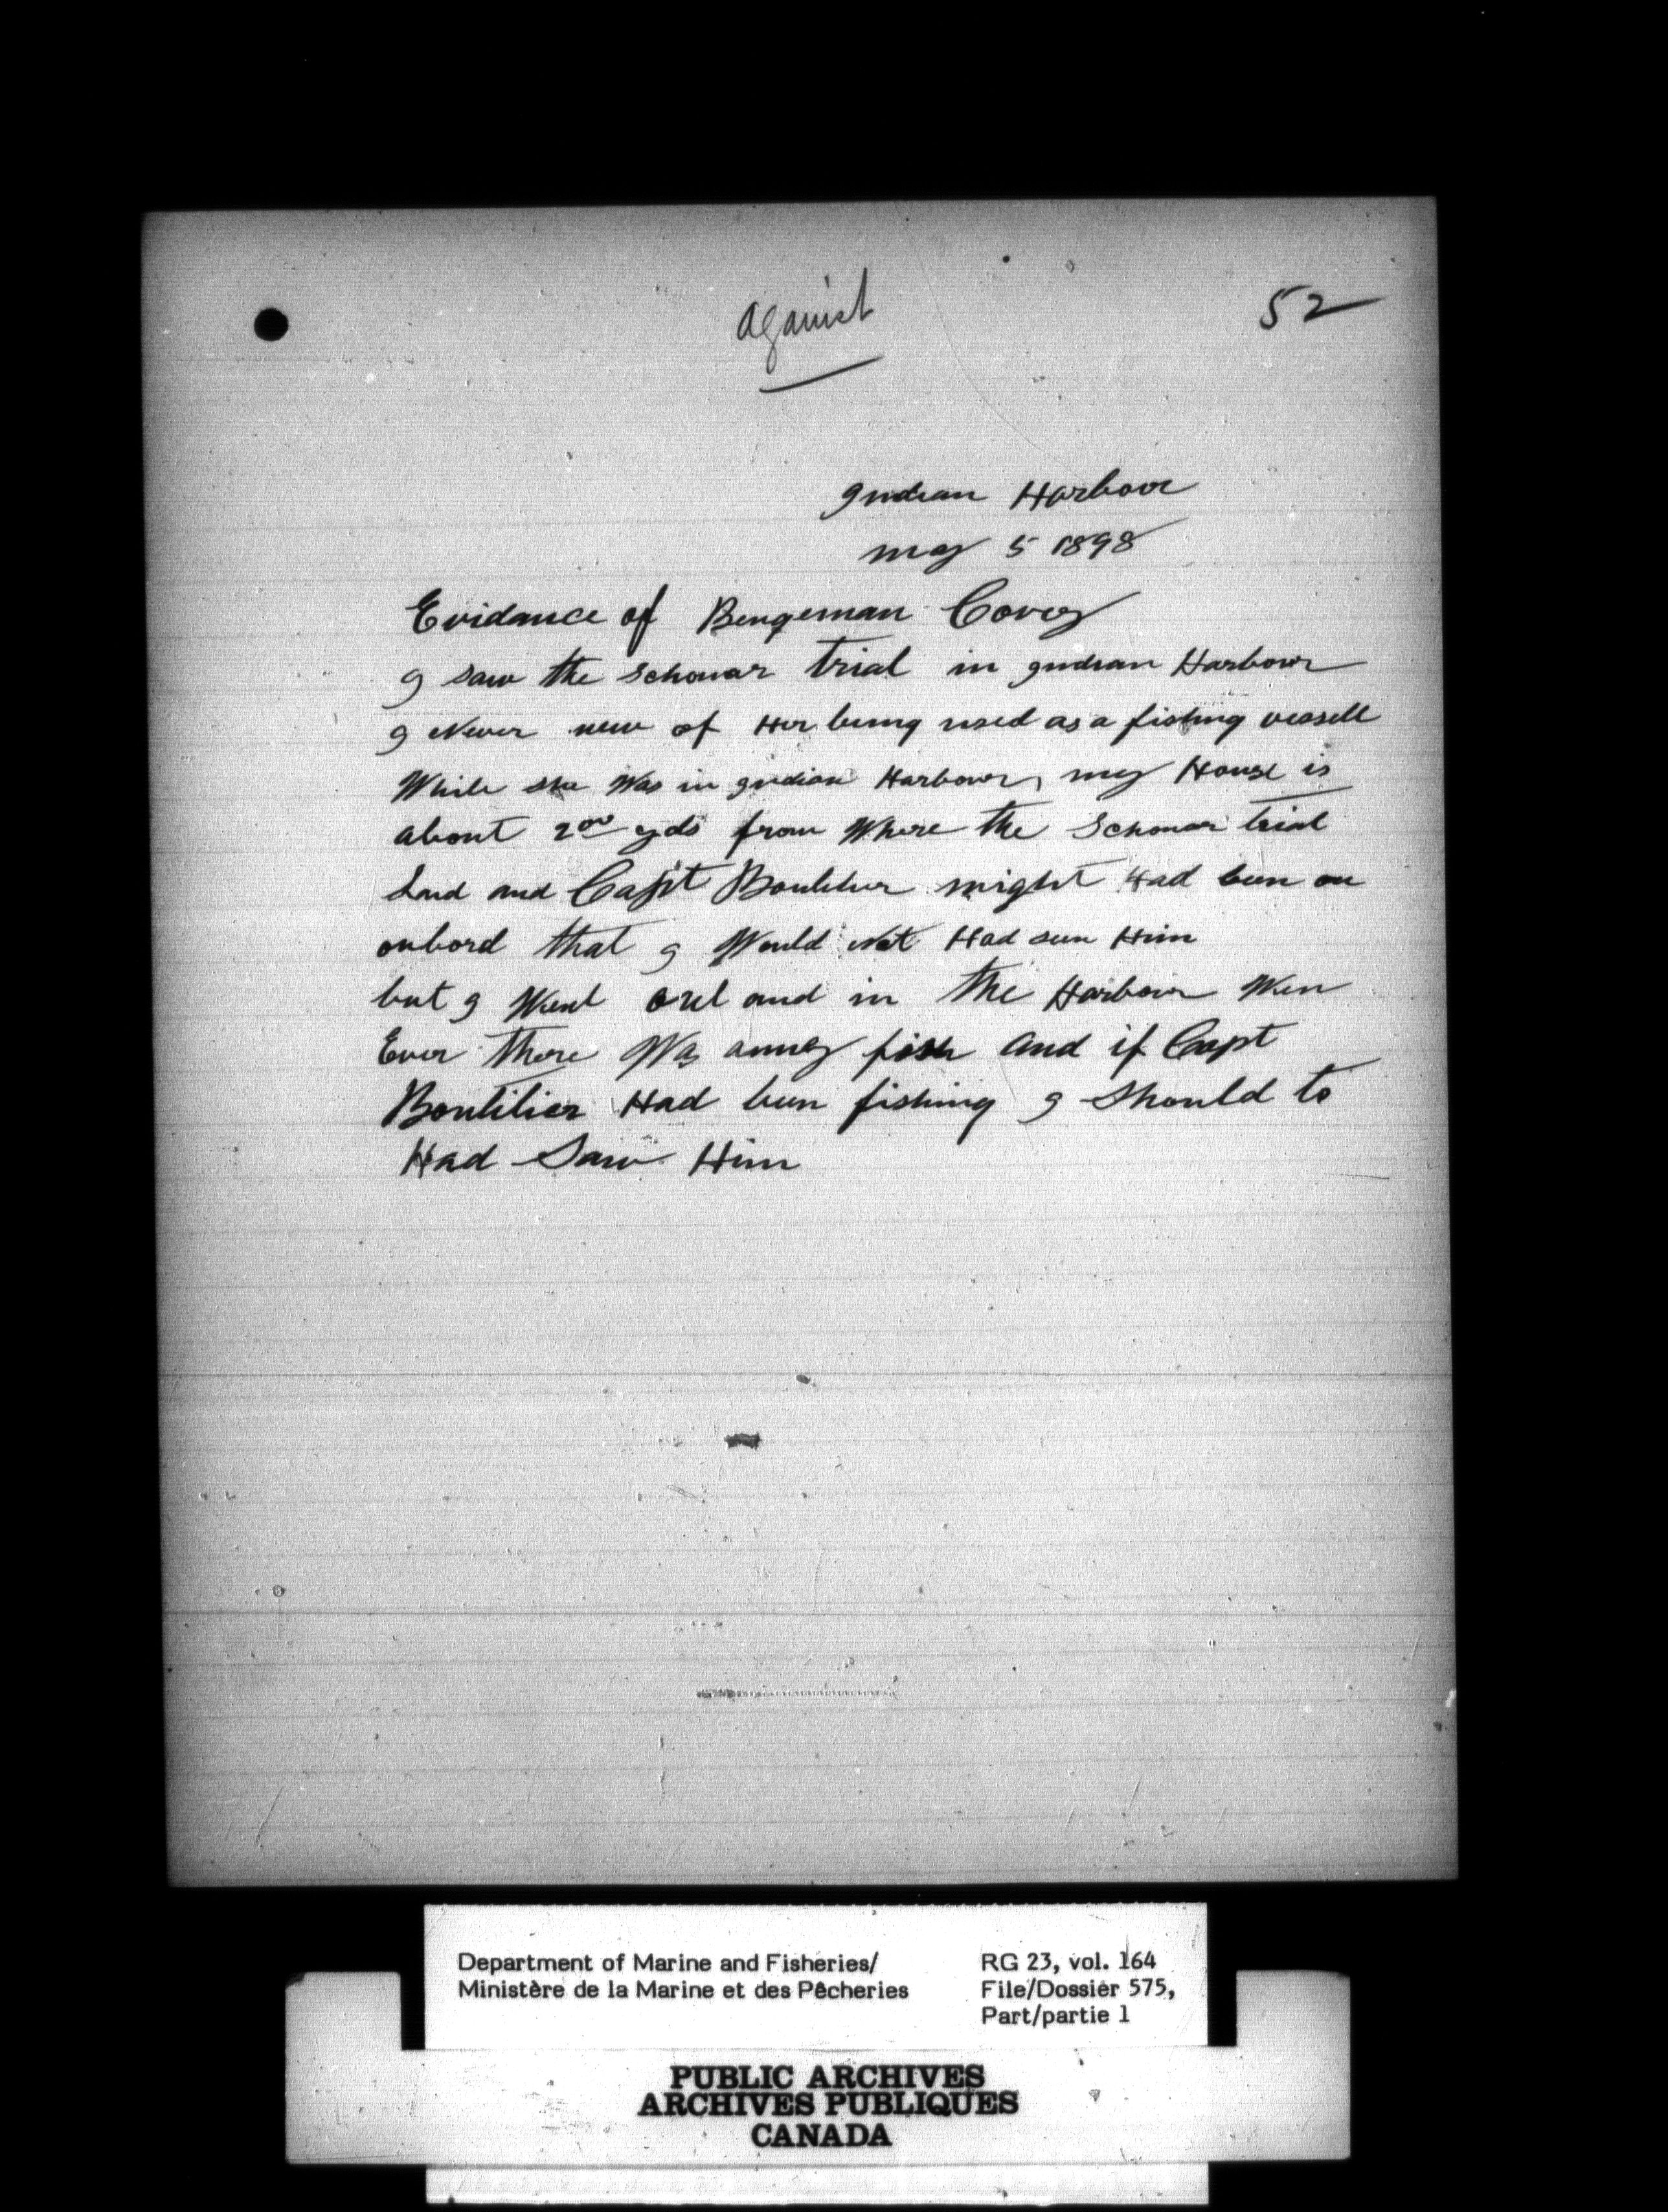 against
52
Indian Harbour
may 5 1898
Evidance of Bengeman Covey
I saw the schonar trial in Indian Harbour
I Never new of Her being used as a fishing vessell
While she Was in Indian Harbour, my House is
about 200 yds from Where the Schonar trial
Laid and Capt Boutilier might Had been on
onbord that I Would Not Had seen Him
but I Went out and in the Harbour When
Ever there Was anney fish and if Capt
Boutilier Had been fishing I Should to
Had Saw Him
Department of Marine and Fisheries/
Ministère de la Marine et des Pêcheries
RG 23, vol. 164
File/Dossier 575,
Part/partie 1
PUBLIC ARCHIVES
ARCHIVES PUBLIQUES
CANADA